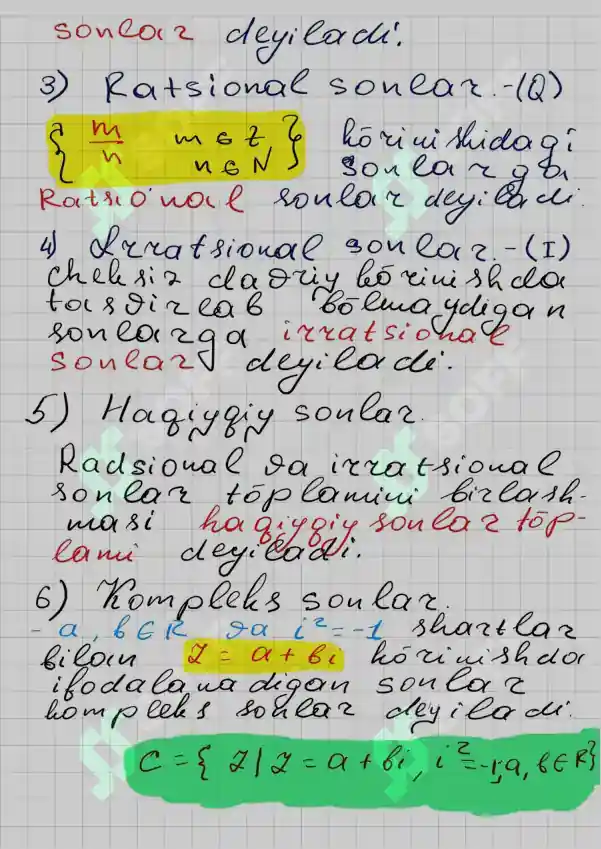 sonlar deyiladi.
3) Ratsional sonlar. -(Q)
{ m/n m ∈ Z n ∈ N } kõrinishidagi
sonlarga
Ratsional sonlar deyiladi.
4) Irratsional sonlar. -(I)
Cheksiz davriy kõrinishda
tasvirlab bõlmaydigan
sonlarga irratsional
sonlar deyiladi.
5) Haqiyqiy sonlar.
Radsional va irratsional
sonlar tõplamini birlash-
masi haqiyqiy sonlar tõp-
lami deyiladi.
6) Kompleks sonlar.
- a, b ∈ R va i² = -1 shartlar
bilan Z = a + bi kõrinishda
ifodalanadigan sonlar
kompleks sonlar deyiladi.
C = { Z | Z = a + bi, i² = -1, a, b ∈ R }